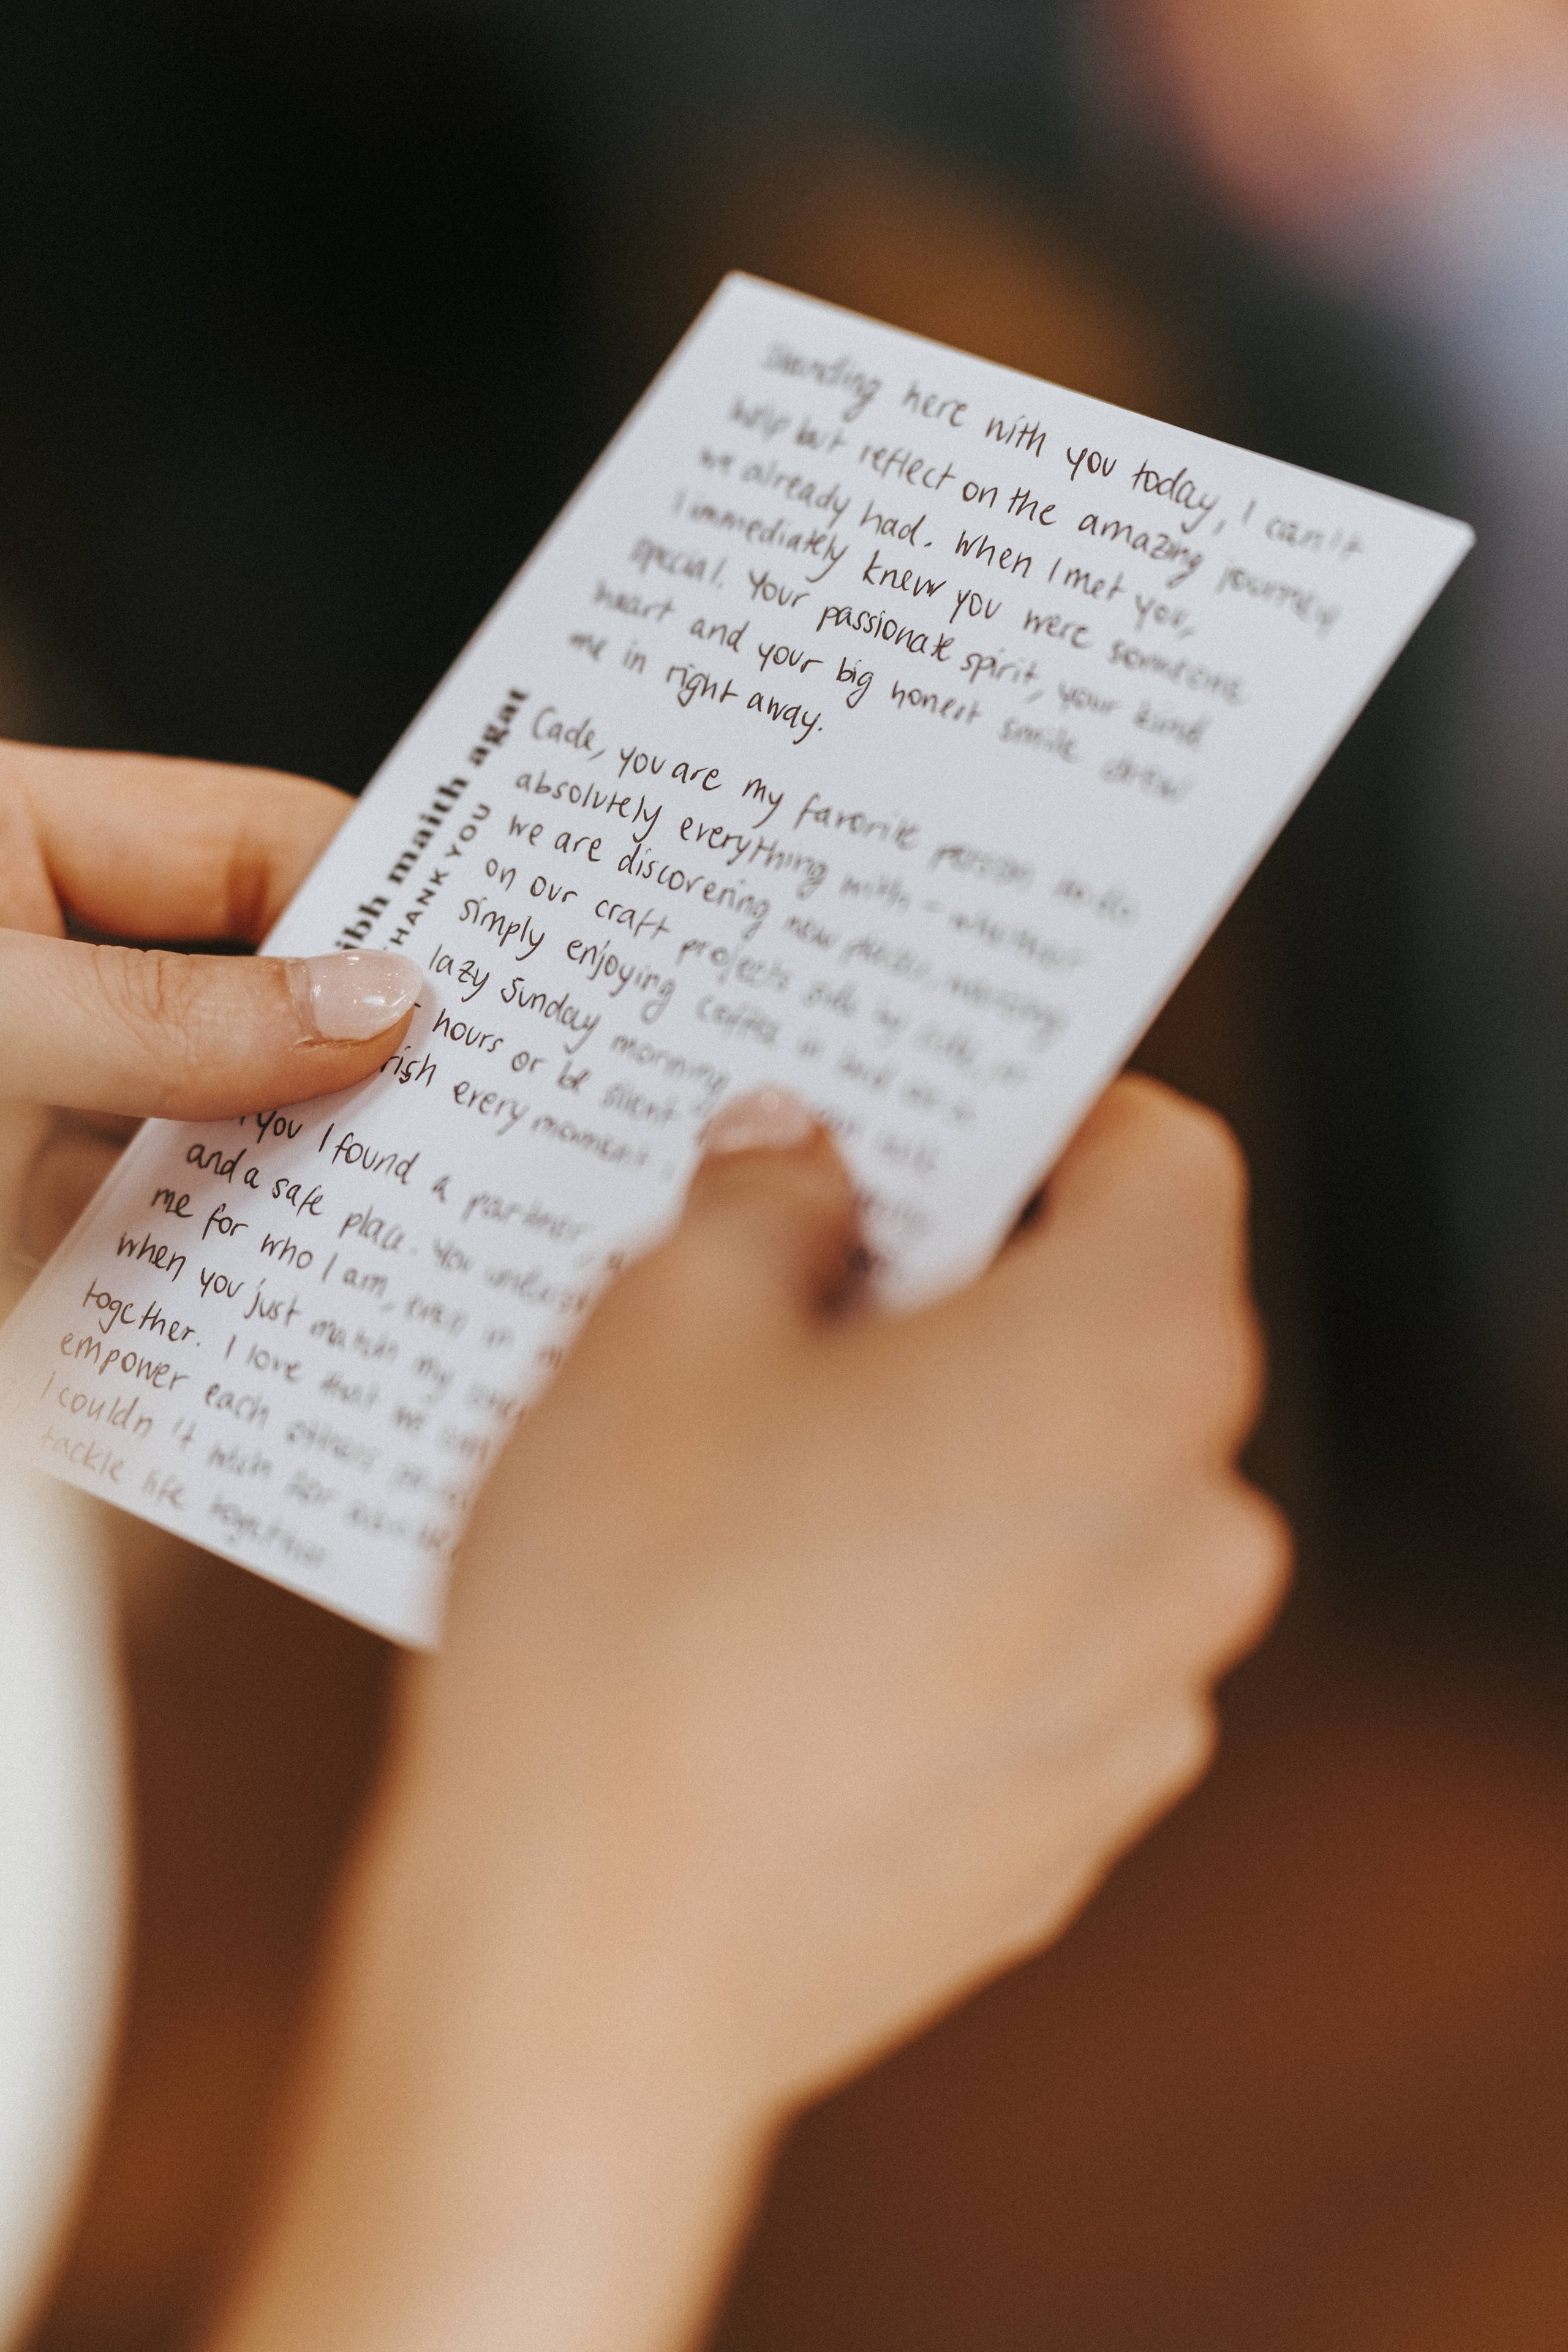 Standing here with you today, I can't
help but reflect on the amazing journey
we already had. When I met you,
I immediately knew you were someone
special. Your passionate spirit, your kind
heart and your big honest smile drew
me in right away.
Cade, you are my favorite person to do
absolutely everything with – whether
we are discovering new places, working
on our craft projects side by side, or
simply enjoying coffee in bed on a
lazy Sunday morning
hours or be silent
rish every moment
you I found a partner,
and a safe place. You
me for who I am, even in
when you just match my
together. I love that we
empower each others
I couldn't wish for
tackle life together
ibh maith agat
THANK YOU